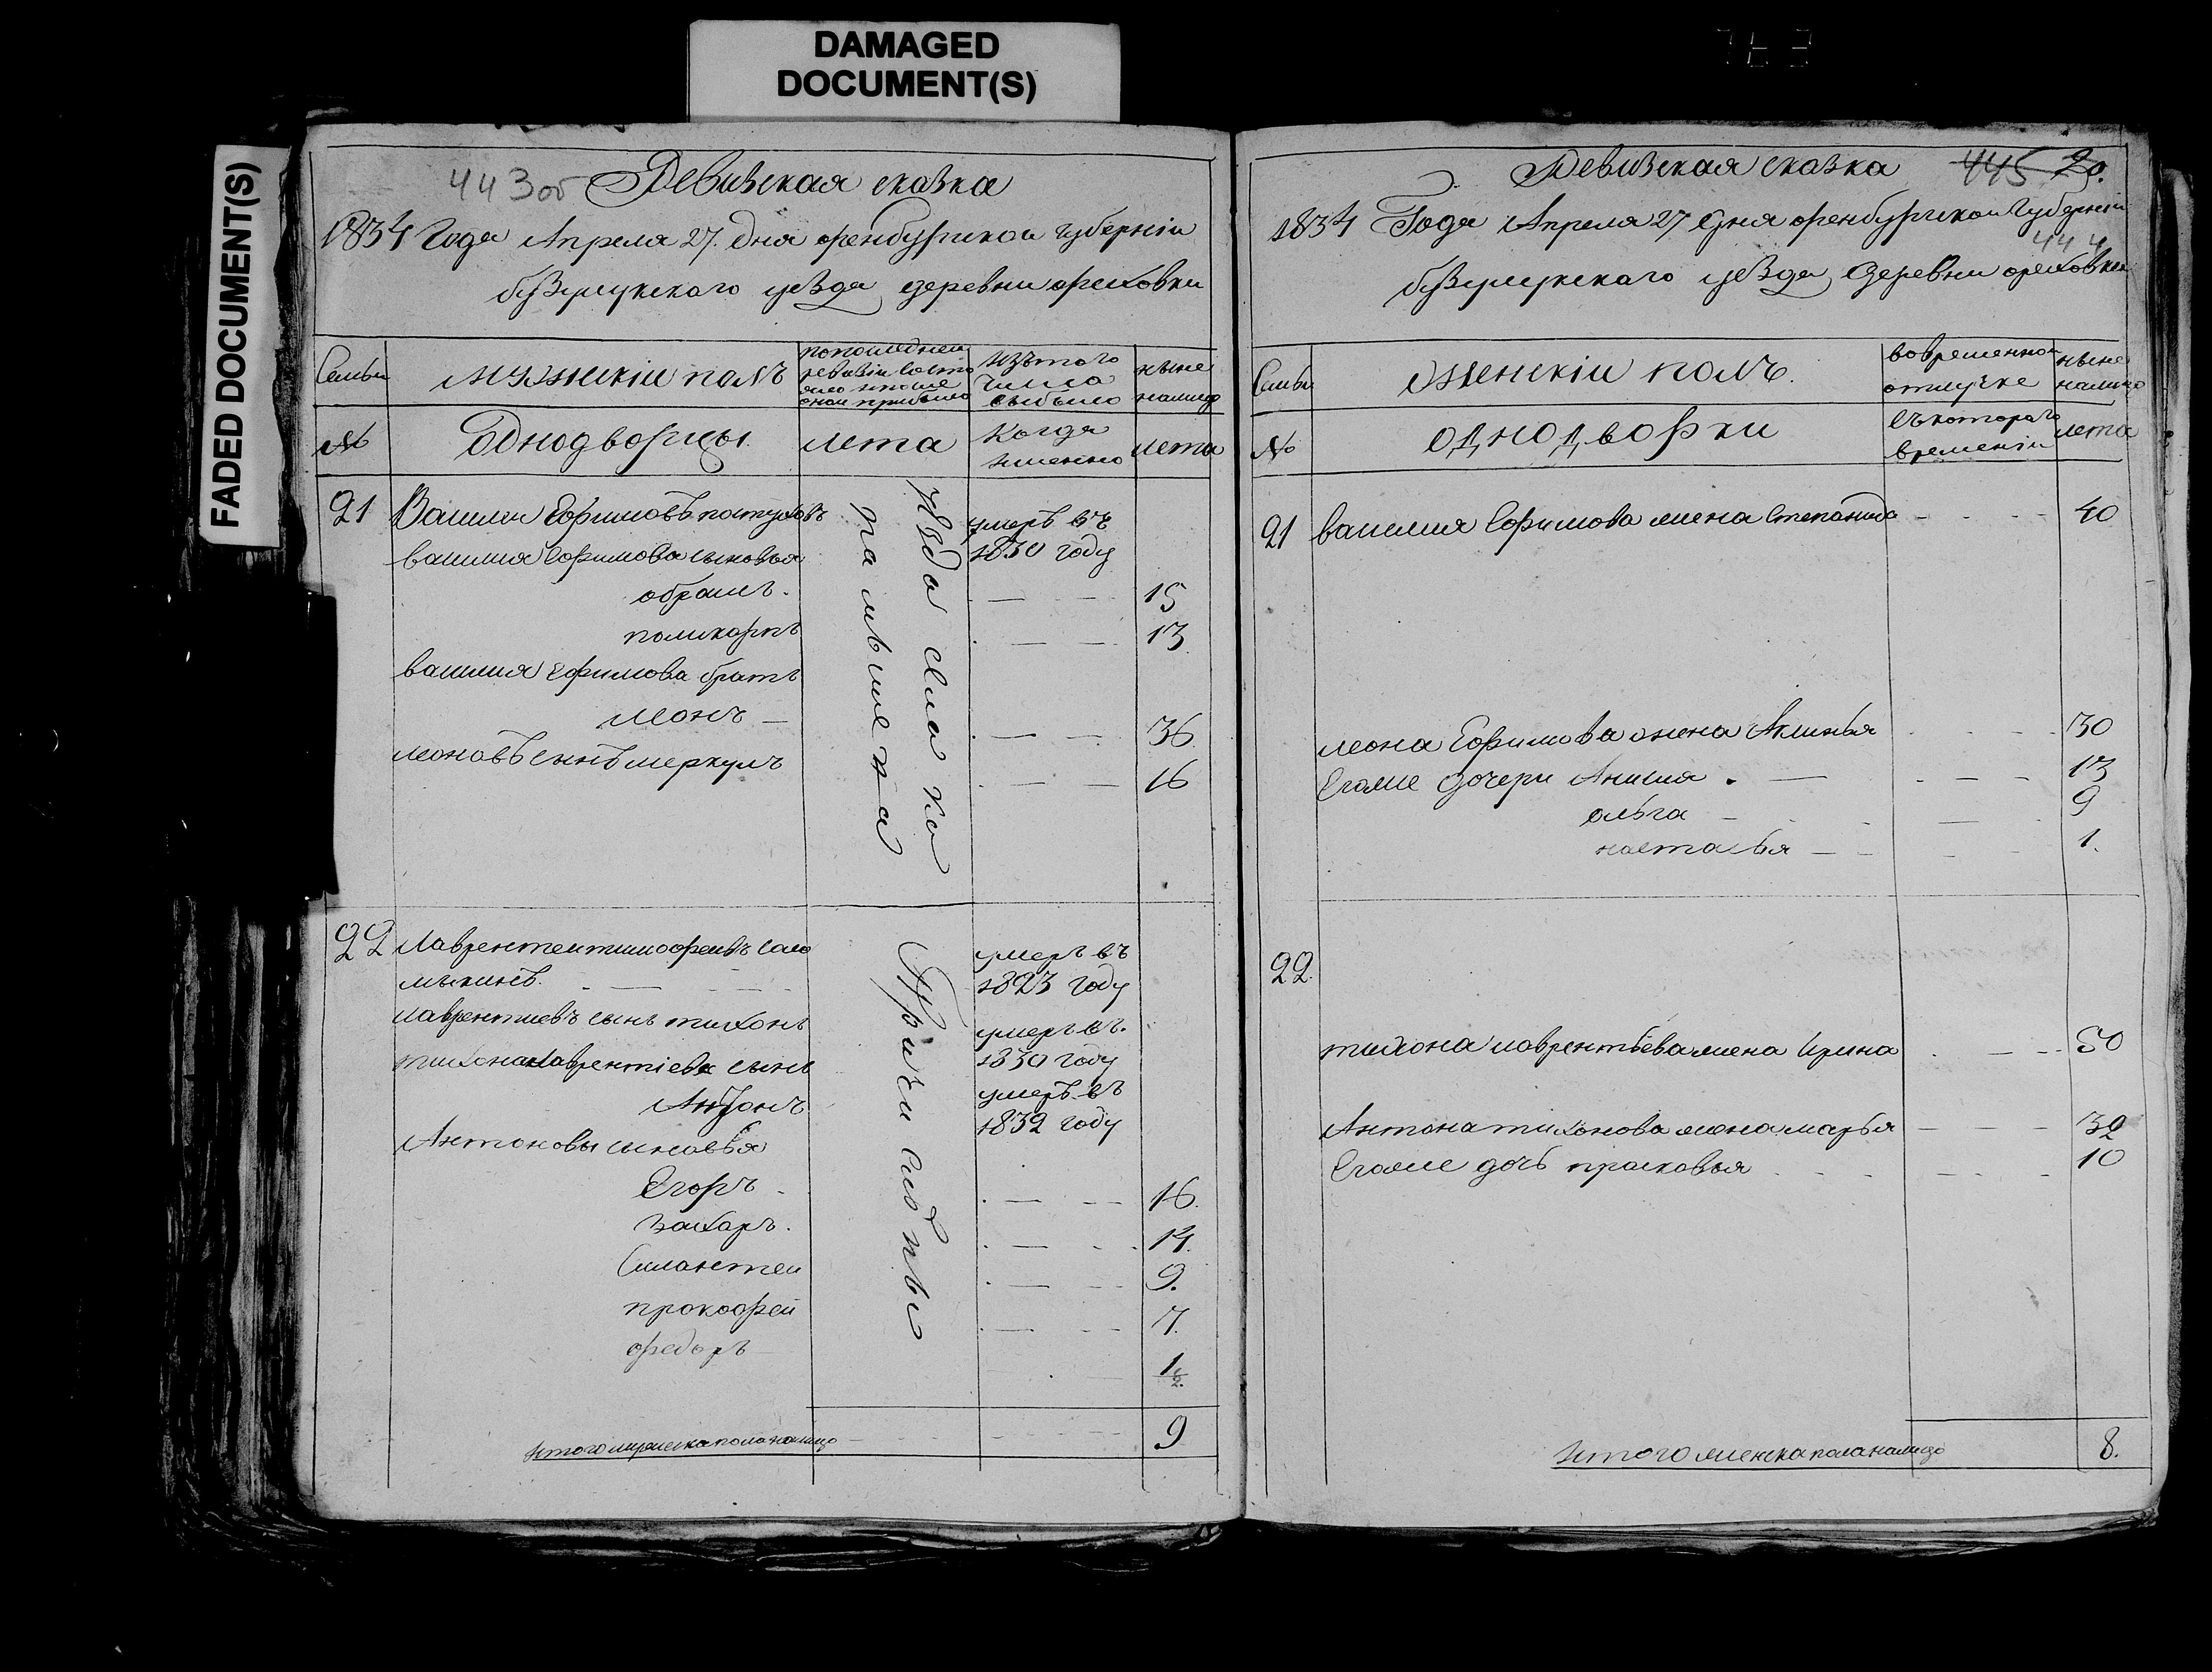 DAMAGED
DOCUMENT(S)
FADED DOCUMENT(S)
443об Ревизская сказка
1834 Года Апреля 27. дня оренбургскои губернiи
бузулукскаго уезда деревни ореховки
Семьи
мужескiи полъ
попоследнеи
ревизiи состо
яло ипосле
онои прибыло
изътого
числа
выбыло
ныне
налицо
№
Однодворцы.
лета
когда
именно
лета
21 Васили Ефимовъ пастуховъ
умеръ въ
1830 году
василия Ефимова сыновья
абрамъ. 15
поликарпъ 13
василия ефимова братъ
леонъ 36
леоновъ сынъ меркулъ 16
22 Лаврентеи тимофеивъ сало
мыкинъ.
умеръ въ
1823 году
лаврентиевъ сынъ тихонъ
умеръ въ.
1830 году
тихона лаврентiева сынъ
Антонъ
умеръ въ
1832 году
Антоновы сыновья
Егоръ 16.
захаръ. 14.
Силантеи 9.
прокофеи 7.
федоръ 1/2.
итого мужеска пола налицо 9
Ревизская сказка 445 20.
1834 Года Апреля 27 дня оренбургскои Губернiи
444
бузулукскаго уезда деревни ореховки
Семьи
женскiи полъ.
вовременнои
отлучке
ныне
налицо
№
однодворки
съкотораго
временiи
лета
21 василия Ефимова жена Степанида 40
леона Ефимова жена Аклинья 30
Егоже дочери Анисия 13
ольга 9
настасья 1.
22.
тихона лаврентьева жена Ирина 50
Антона тихонова жена марья 32
Егоже дочь прасковья 10
итого женска пола налицо 8.